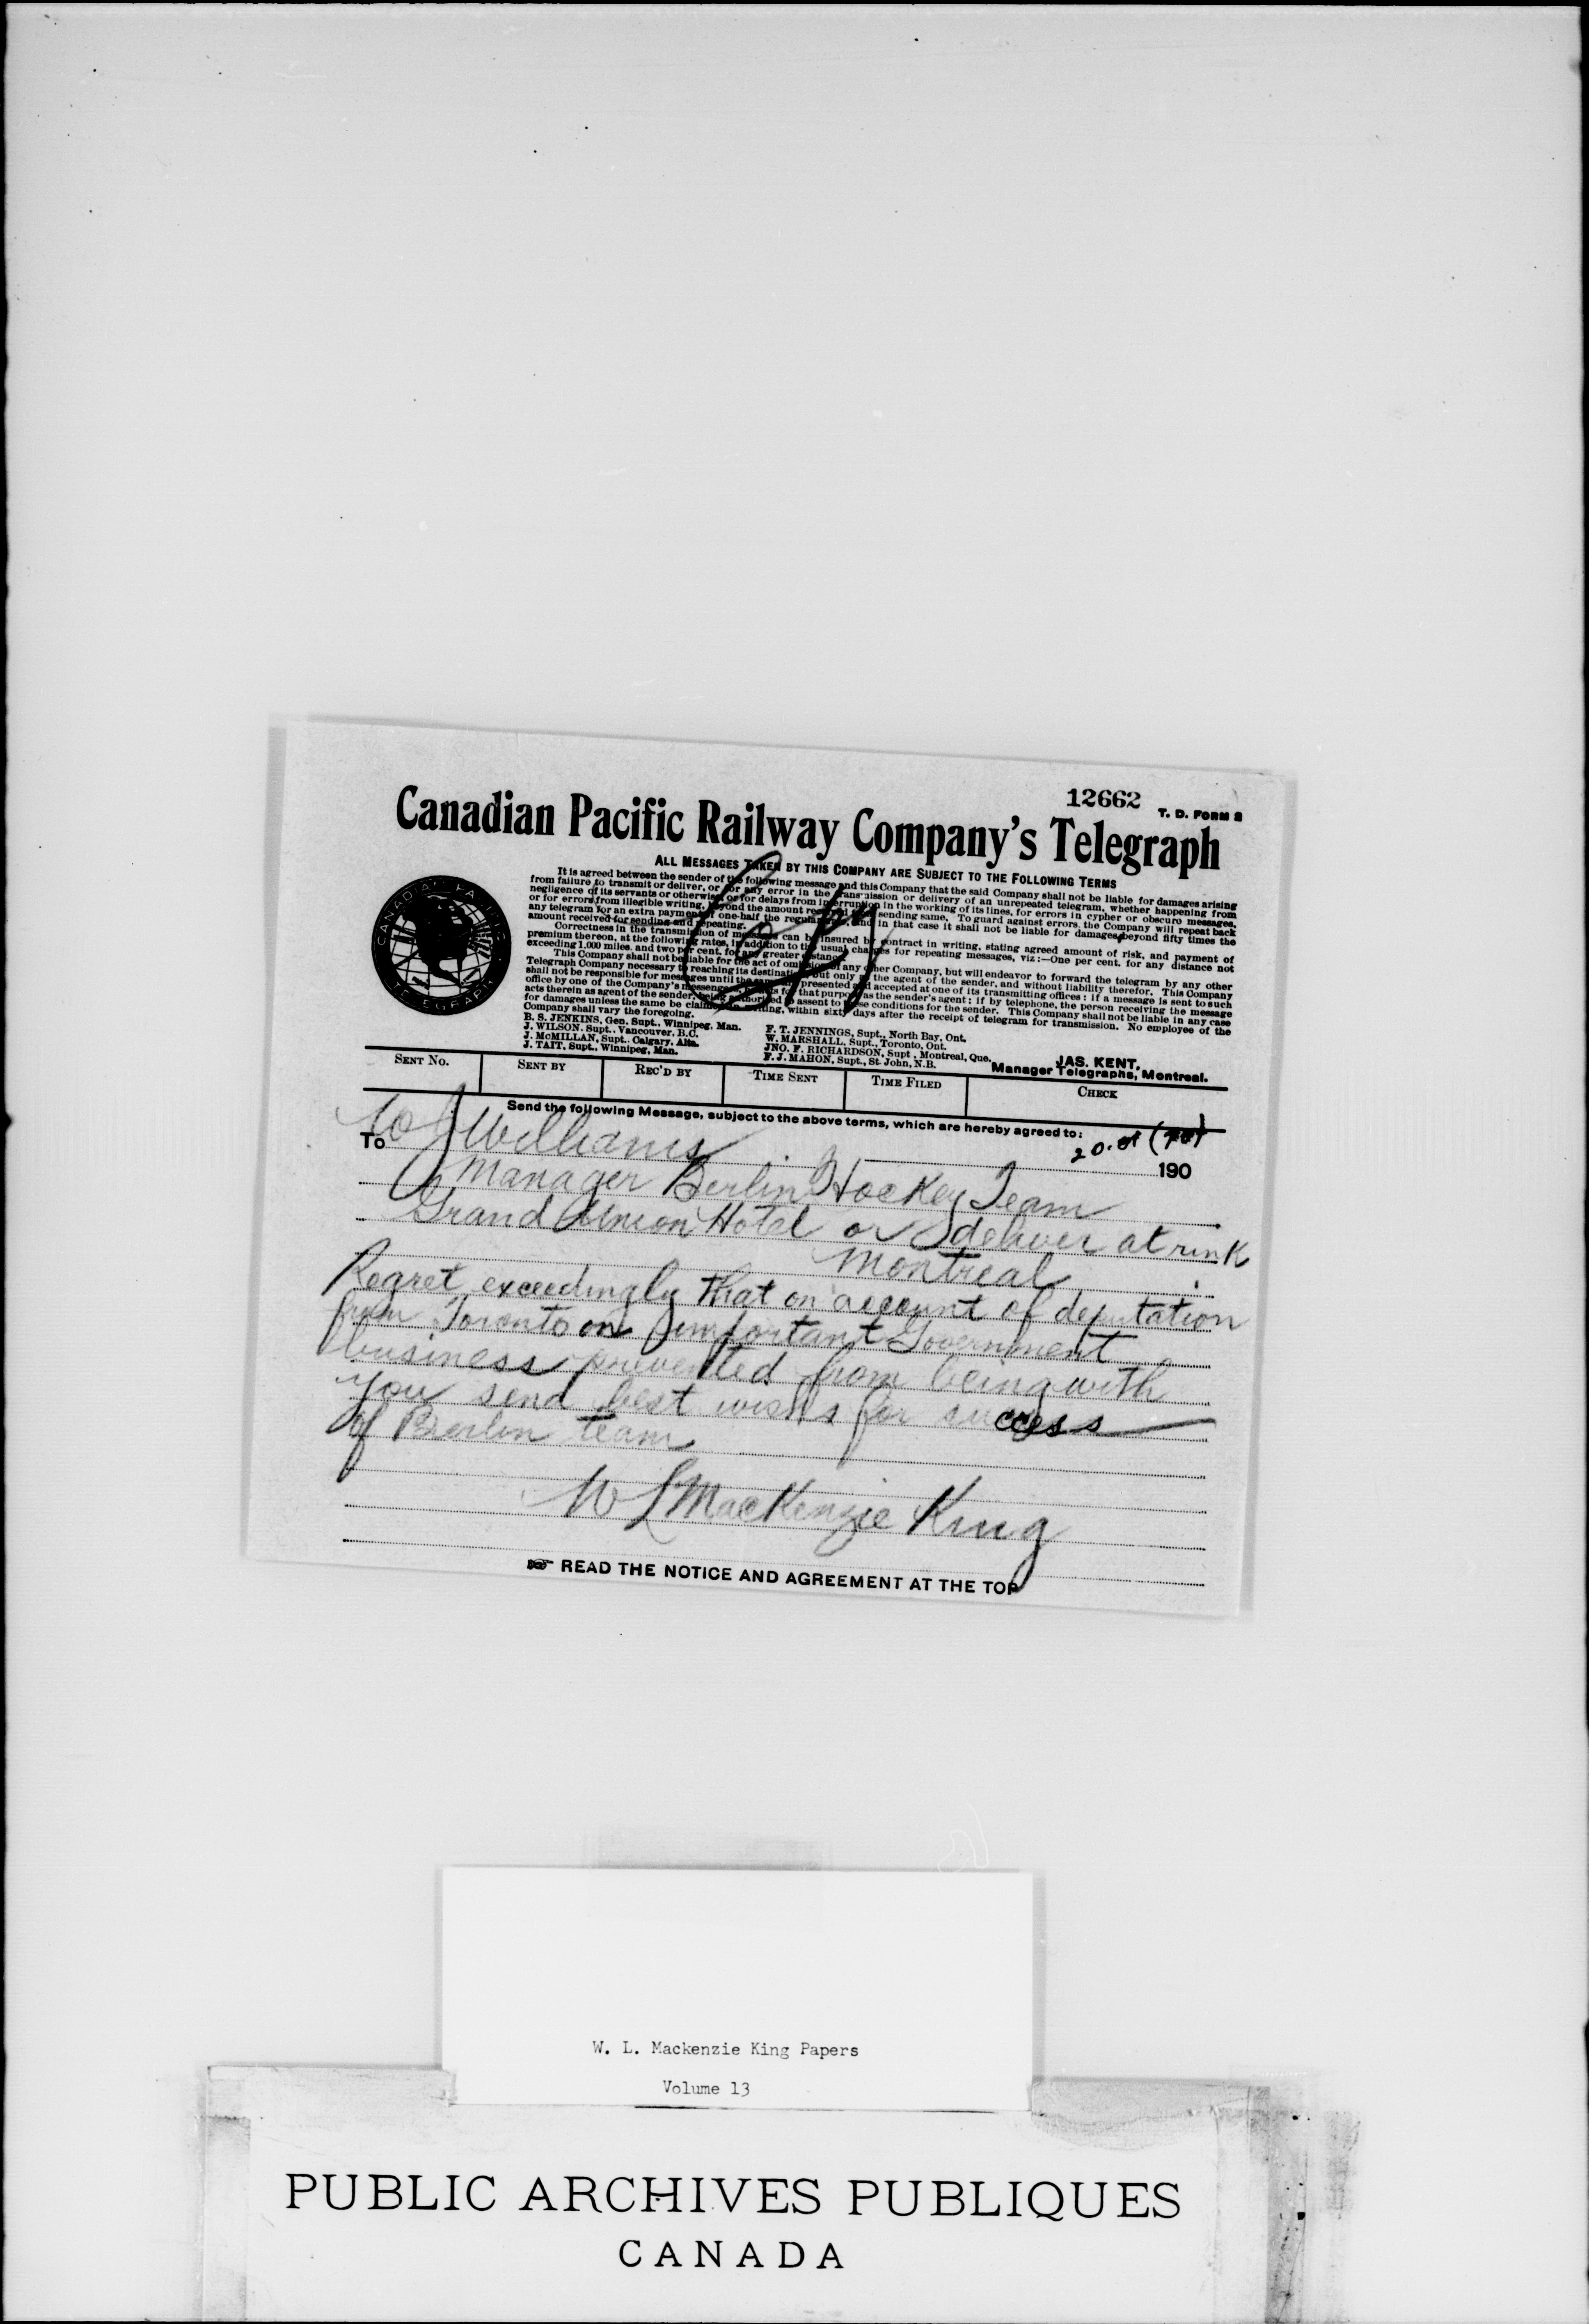 12662 T. D. FORM 2
Canadian Pacific Railway Company's Telegraph
ALL MESSAGES TAKEN BY THIS COMPANY ARE SUBJECT TO THE FOLLOWING TERMS
It is agreed between the sender of the following message and this Company that the said Company shall not be liable for damages arising
from failure to transmit or deliver, or for any error in the transmission or delivery of an unrepeated telegram, whether happening from
negligence of its servants or otherwise, or for delays from interruption in the working of its lines, for errors in cypher or obscure messages,
or for errors from illegible writing, beyond the amount received for sending same. To guard against errors, the Company will repeat back
any telegram for an extra payment of one-half the regular rate, and in that case it shall not be liable for damages beyond fifty times the
amount received for sending and repeating.
Correctness in the transmission of messages can be insured by contract in writing, stating agreed amount of risk, and payment of
premium thereon, at the following rates, in addition to the usual charges for repeating messages, viz:—One per cent. for any distance not
exceeding 1,000 miles, and two per cent. for any greater distance.
This Company shall not be liable for the act of omission of any other Company, but will endeavor to forward the telegram by any other
Telegraph Company necessary to reaching its destination, but only as the agent of the sender, and without liability therefor. This Company
shall not be responsible for messages until the same are presented and accepted at one of its transmitting offices: if a message is sent to such
office by one of the Company's messengers, he acts for that purpose as the sender's agent; if by telephone, the person receiving the message
acts therein as agent of the sender, being authorized to assent to these conditions for the sender. This Company shall not be liable in any case
for damages unless the same be claimed in writing, within sixty days after the receipt of telegram for transmission. No employee of the
Company shall vary the foregoing.
B. S. JENKINS, Gen. Supt., Winnipeg, Man. F. T. JENNINGS, Supt., North Bay, Ont.
J. WILSON, Supt., Vancouver, B.C. W. MARSHALL, Supt., Toronto, Ont.
J. McMILLAN, Supt., Calgary, Alta. JNO. F. RICHARDSON, Supt., Montreal, Que.
J. TAIT, Supt., Winnipeg, Man. F. J. MAHON, Supt., St. John, N.B.
JAS. KENT,
Manager Telegraphs, Montreal.
CANADIAN PACIFIC
TELEGRAPH
SENT NO. SENT BY REC'D BY TIME SENT TIME FILED CHECK
Send the following Message, subject to the above terms, which are hereby agreed to:
To J Williams 190
Manager Berlin Hockey Team
Grand Union Hotel or deliver at rink
Montreal
Regret exceedingly that on account of deputation
from Toronto on important Government
business prevented from being with
you send best wishes for success
of Berlin team
W L MacKenzie King
☞ READ THE NOTICE AND AGREEMENT AT THE TOP
W. L. Mackenzie King Papers
Volume 13
PUBLIC ARCHIVES PUBLIQUES
CANADA